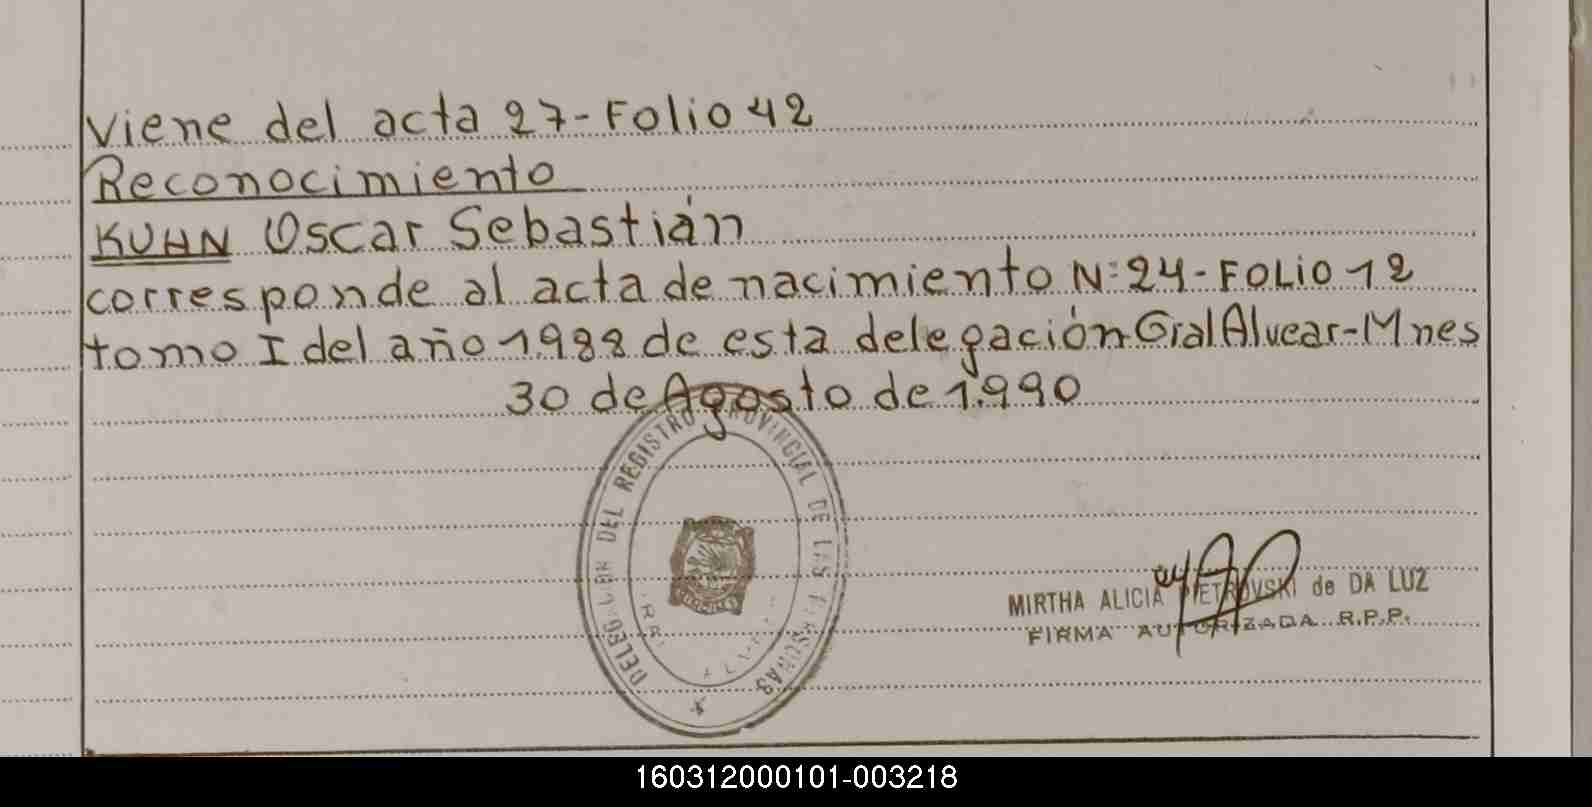 Viene del acta 27-Folio 42
Reconocimiento
KUHN Oscar Sebastián
corresponde al acta de nacimiento N: 24-FOLIO 12
tomo I del año 1.988 de esta delegación Gral Alvear-Mnes
30 de Agosto de 1.990
DELEGACION DEL REGISTRO PROVINCIAL DE LAS PERSONAS
MIRTHA ALICIA PIETROVSKI de DA LUZ
FIRMA AUTORIZADA R.P.P.
160312000101-003218